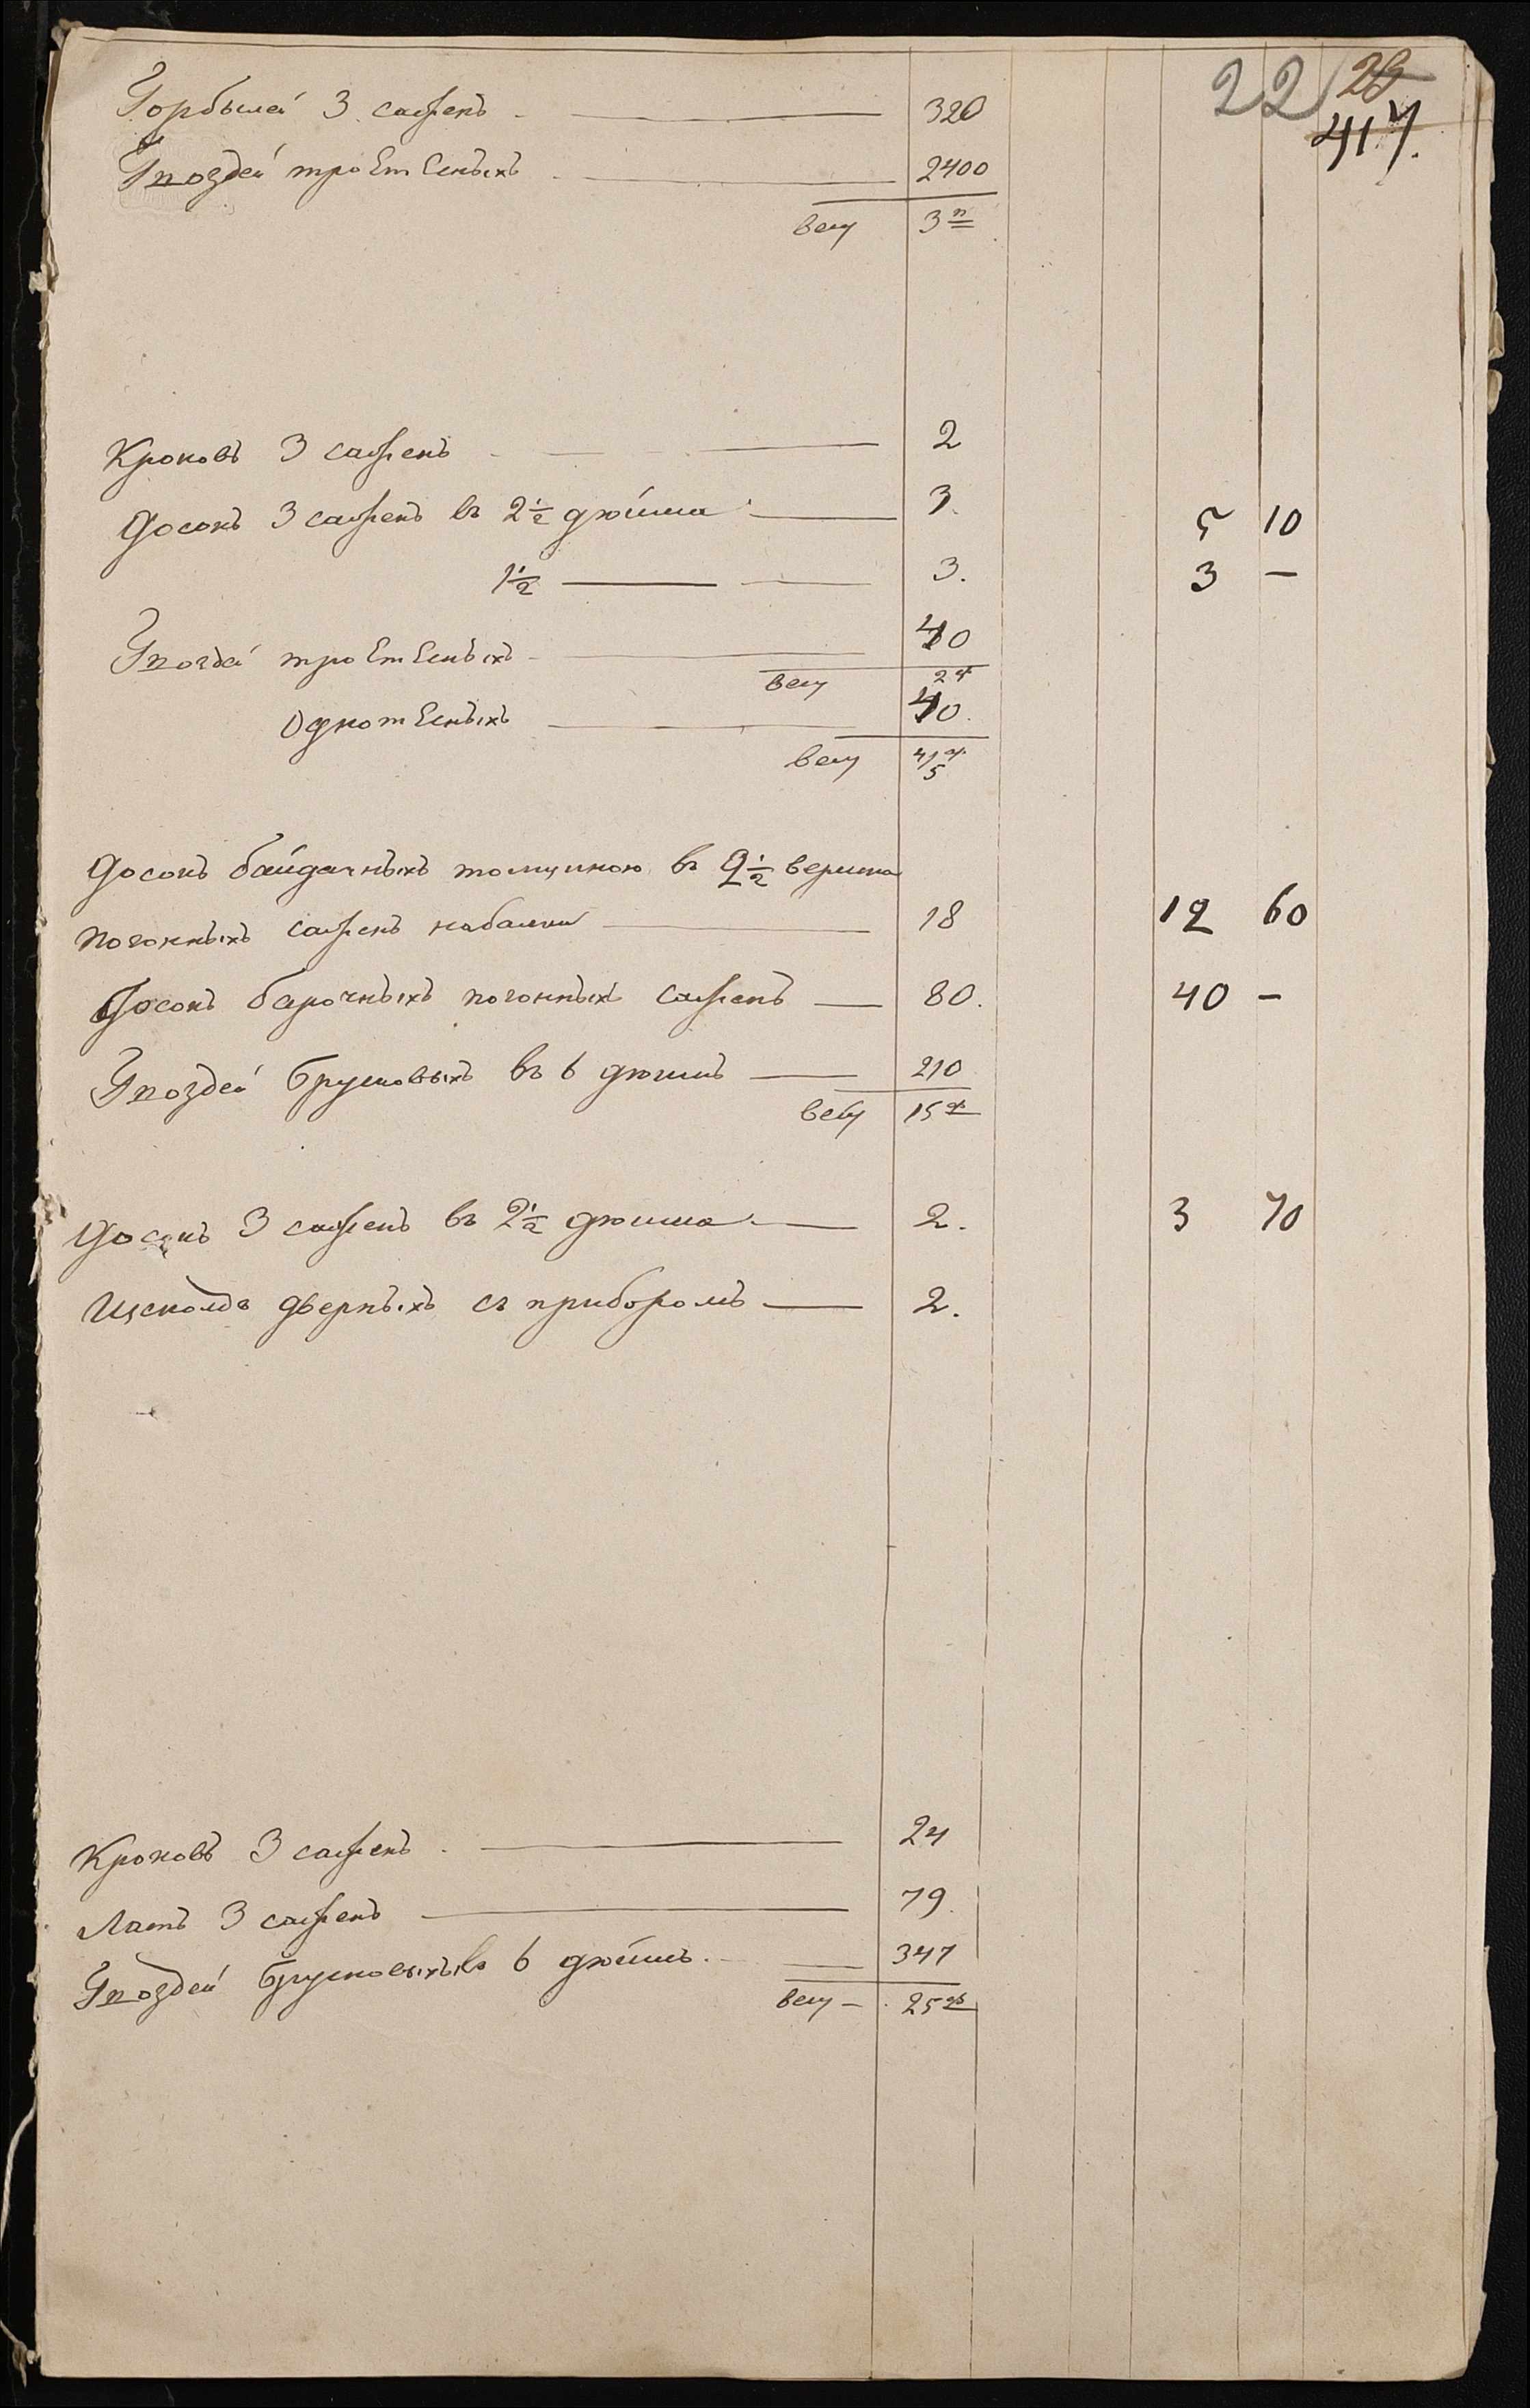 22 28
417.
Горбылей 3 сажень — 320
Гвоздей троетесныхъ — 2400
весу 3 п
Кроковъ 3 сажень — 2
Досокъ 3 сажень въ 2½ дюйма — 3. 5 10
1½ — 3. 3 —
Гвоздей троетесныхъ — 40
весу 2 ф
Однотесныхъ — 40.
весу 4/5 ф.
Досокъ байдачныхъ толщиною въ 2½ вершка
погонныхъ сажень на балки — 18 12 60
Досокъ барочныхъ погонныхъ сажень — 80. 40 —
Гвоздей брусковыхъ въ 6 дюйм — 210
весу 15 ф
Досокъ 3 сажень въ 2½ дюйма — 2. 3 70
дверныхъ съ приборомъ — 2.
Кроковъ 3 сажень — 24
Латъ 3 сажень — 79.
Гвоздей брусковыхъ въ 6 дюймъ — 347
весу — 25 ф